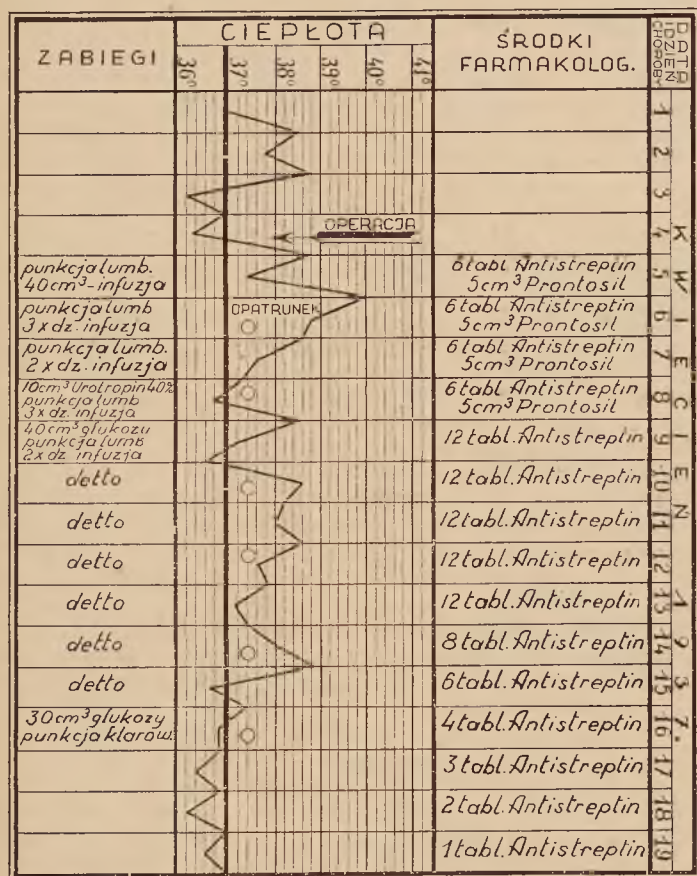 ZABIEGI
CIEPŁOTA
36° 37° 38° 39° 40° 41°
ŚRODKI
FARMAKOLOG.
DATA
I DZIEŃ
CHOROBY
KWIECIEŃ 1937.
1
2
3
OPERACJA
4
punkcja lumb.
40cm³-infuzja
6 tabl Antistreptin
5cm³ Prontosil
5
punkcja lumb
3 x dz. infuzja
OPATRUNEK
6 tabl Antistreptin
5cm³ Prontosil
6
punkcja lumb.
2 x dz. infuzja
6 tabl Antistreptin
5cm³ Prontosil
7
10cm³ Urotropin 40%
punkcja lumb
3 x dz. infuzja
6 tabl Antistreptin
5cm³ Prontosil
8
40cm³ glukozu
punkcja lumb
2 x dz infuzja
12 tabl. Antistreptin
9
detto
12 tabl. Antistreptin
10
detto
12 tabl. Antistreptin
11
detto
12 tabl. Antistreptin
12
detto
12 tabl. Antistreptin
13
detto
8 tabl. Antistreptin
14
detto
6 tabl. Antistreptin
15
30cm³ glukozy
punkcja klarow.
4 tabl. Antistreptin
16
3 tabl. Antistreptin
17
2 tabl. Antistreptin
18
1 tabl. Antistreptin
19